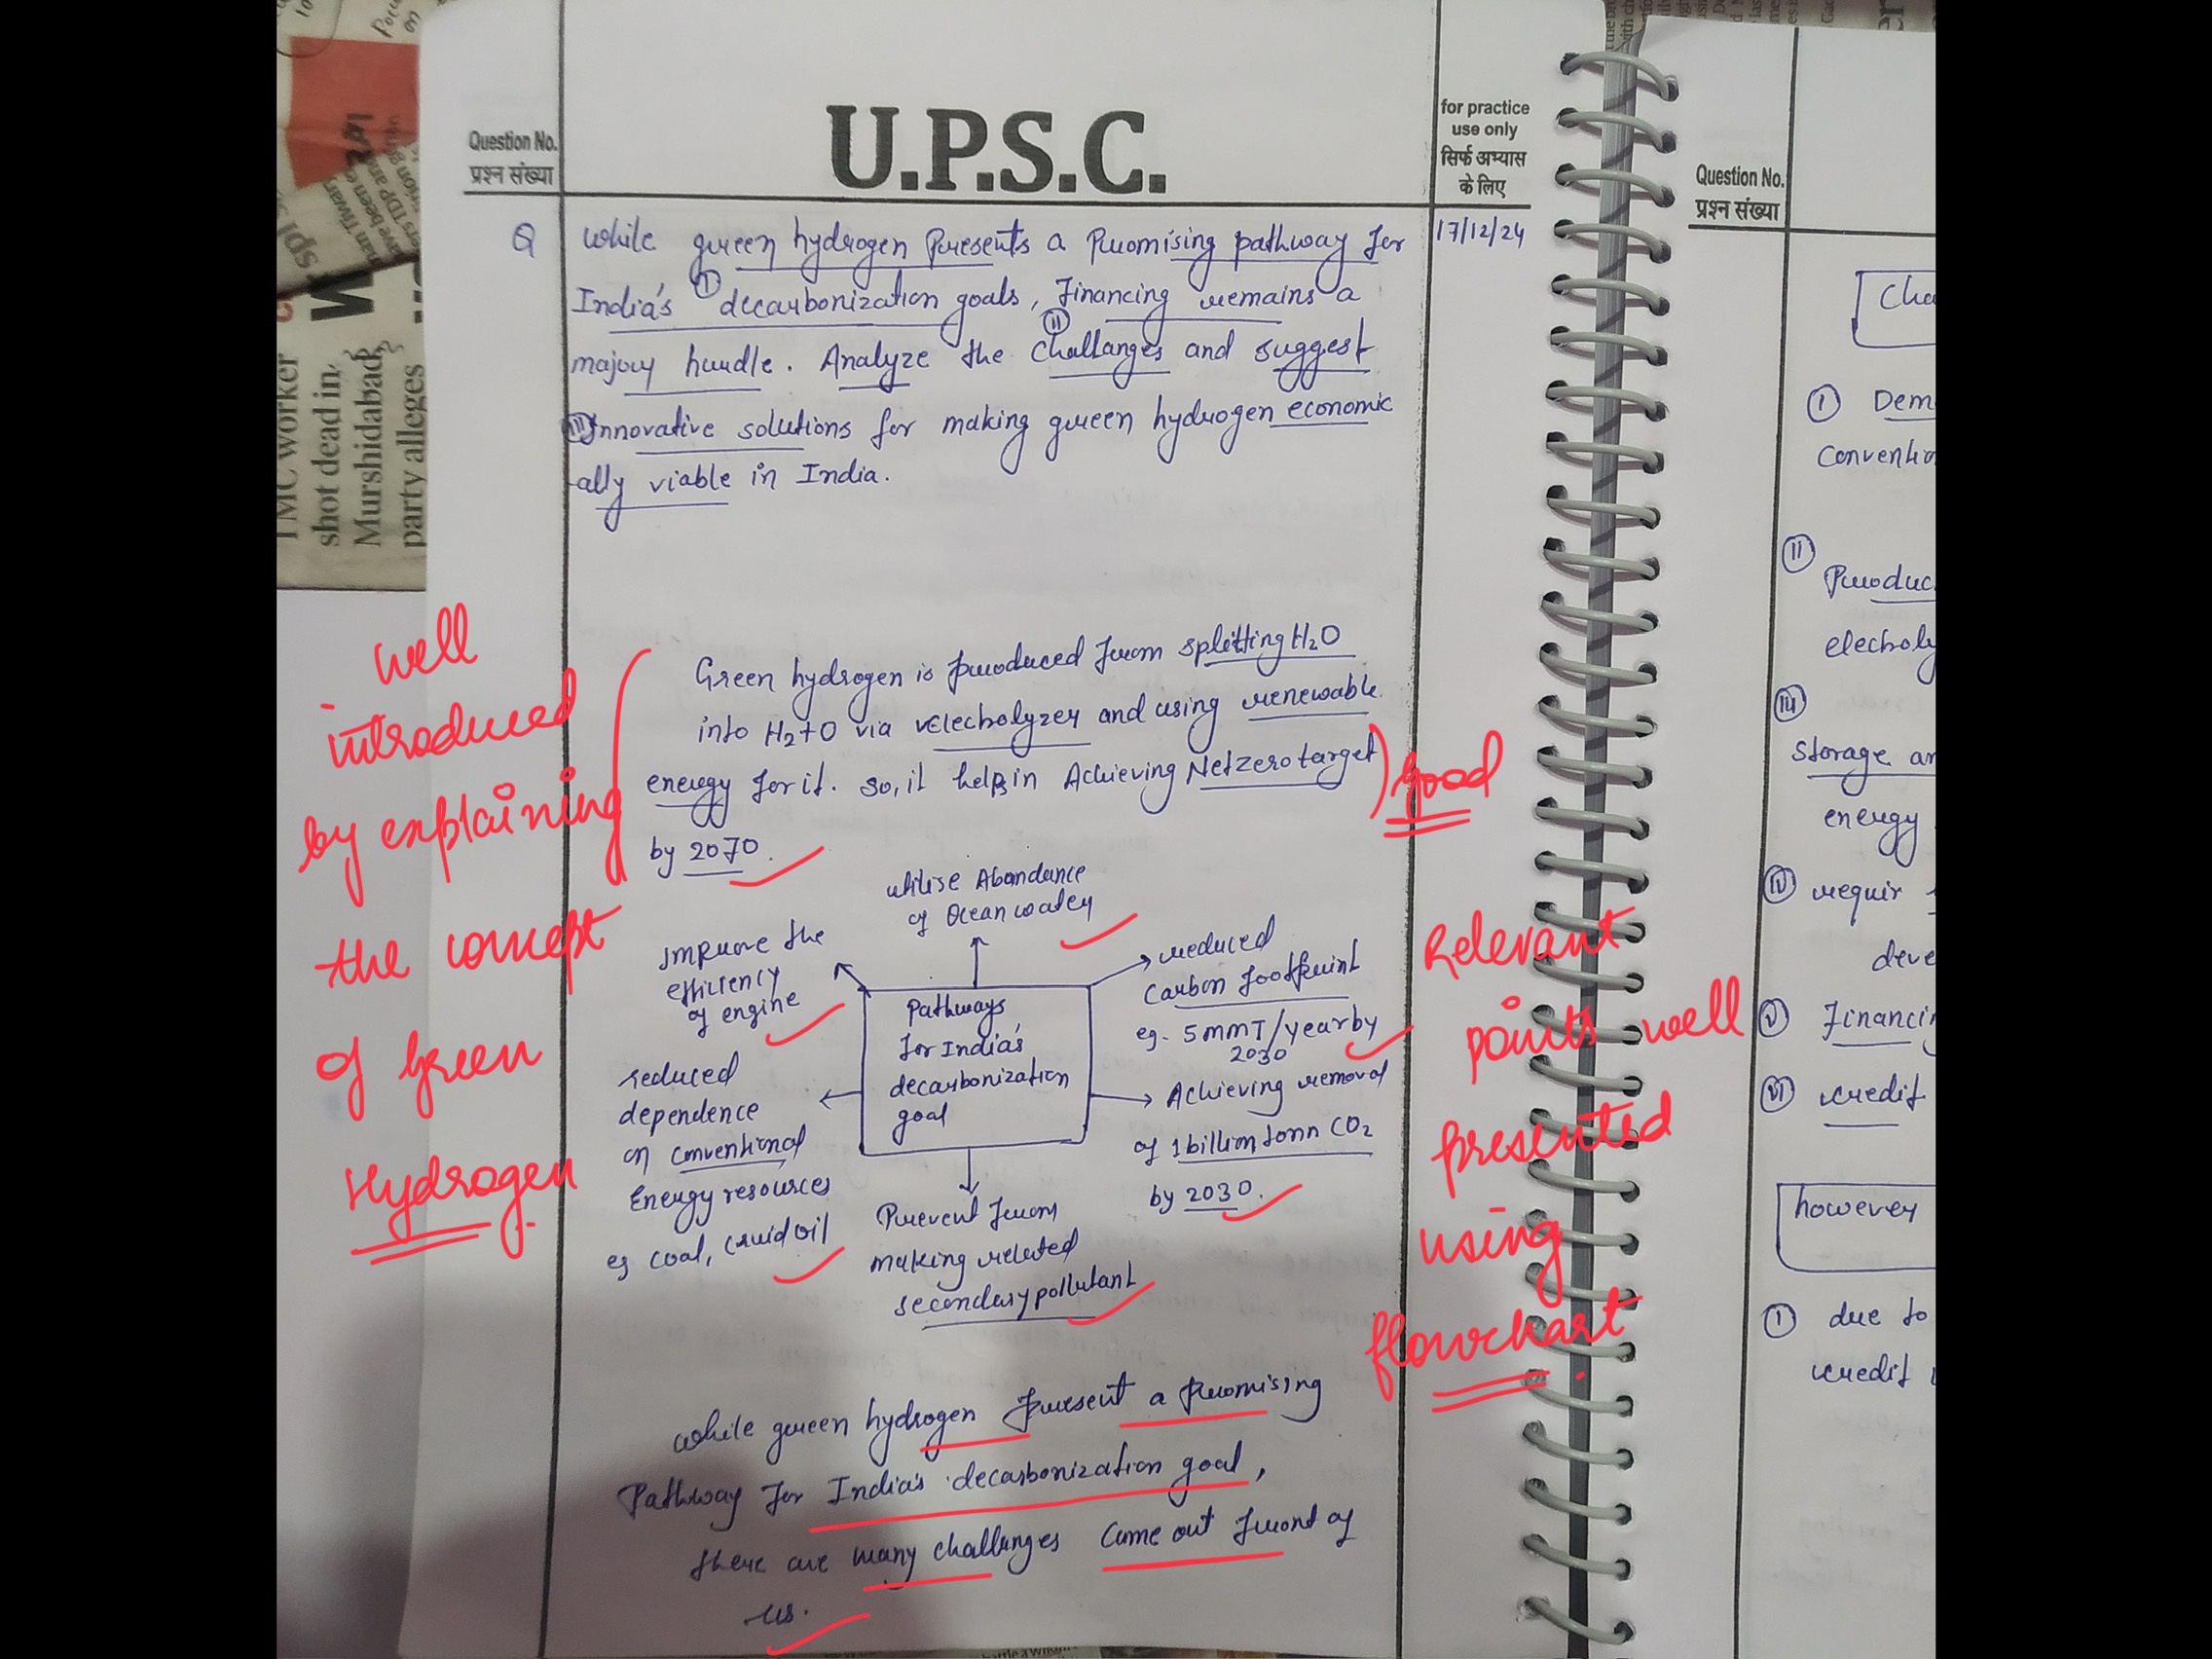 U.P.S.C.
Question No.
प्रश्न संख्या
for practice
use only
सिर्फ अभ्यास
के लिए
17/12/24
Q While green hydrogen Presents a Promising pathway for
India's decarbonization goals, Financing remains a
major hurdle. Analyze the challanges and suggest
Innovative solutions for making green hydrogen economic
ally viable in India.
I
II
III
Green hydrogen is produced from splitting H₂O
into H₂+O via electrolyzer and using renewable
energy for it. so, it helps in Achieving Netzero target
by 2070.
well
introduced
by explaining
the concept
of Green
Hydrogen
good
utilise Abandance
of Ocean water
Improve the
efficiency
of engine
reduced
Carbon footprint
eg. 5 mmT/year by
2030
Pathways
for India's
decarbonization
goal
reduced
dependence
on conventional
Energy resources
eg coal, cruid oil
Achieving removal
of 1 billion tonn CO₂
by 2030.
Prevent from
making related
secondary pollutant
Relevant
points well
presented
using
flowchart
While green hydrogen present a promising
Pathway for India's decarbonization goal,
there are many challenges come out front of
us.
Question No.
प्रश्न संख्या
I
II
III
storage
energy
IV requir
V
VI credit
however
I due to
credit
TMC worker
shot dead in
Murshidabad,
party alleges